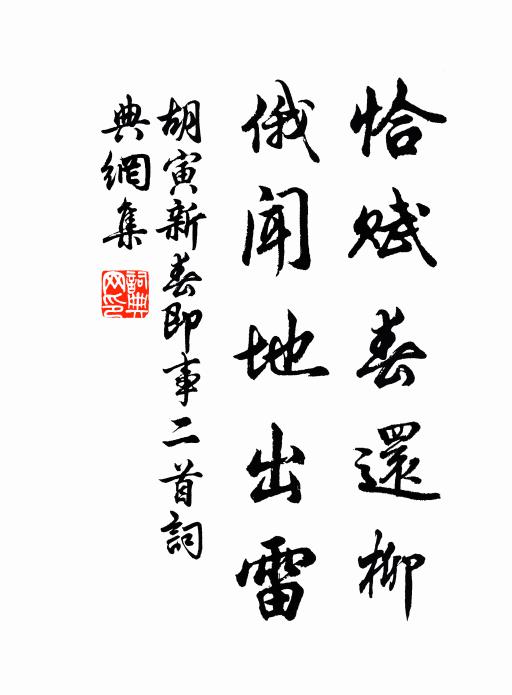 恰賦春還柳
俄聞地出雷
胡寅新春即事二首詞
典網集
詞典網印